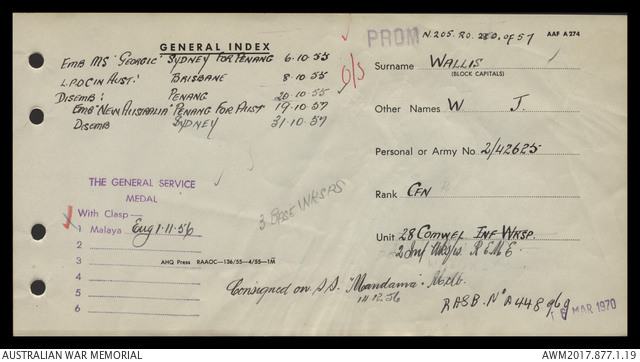 GENERAL INDEX
EMB MS "GEORGIC" SYDNEY FOR PENANG 6.10.55
L.P.O.C IN AUST: BRISBANE 8.10.55
DISEMB: PENANG 20.10.55
EMB "NEW AUSTRALIA" PENANG FOR AUST 19.10.57
DISEMB SYDNEY 31.10.57
O/S
PROM
N.205. RO. of 57
AAF A274
Surname WALLIS
(BLOCK CAPITALS)
Other Names W J.
Personal or Army No. 2/42625
Rank CFN
Unit 28 COMWEL INF WKSP.
2 Inf Wksps. R E M E.
THE GENERAL SERVICE
MEDAL
With Clasp—
1 Malaya Eng 1.11.56
2
3
4
5
6
3 BASE WKSPS
AHQ Press RAAOC—136/55—4/55—1M
Consigned on S.S. "Mandama". Melb.
14.12.56
RASB. No A448
MAR 1970
AUSTRALIAN WAR MEMORIAL
AWM2017.877.1.19